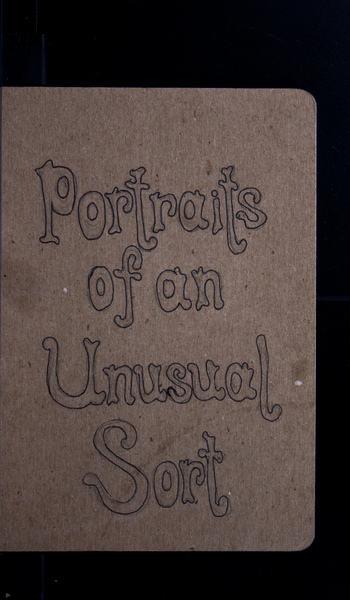 Portraits
of an
Unusual
Sort